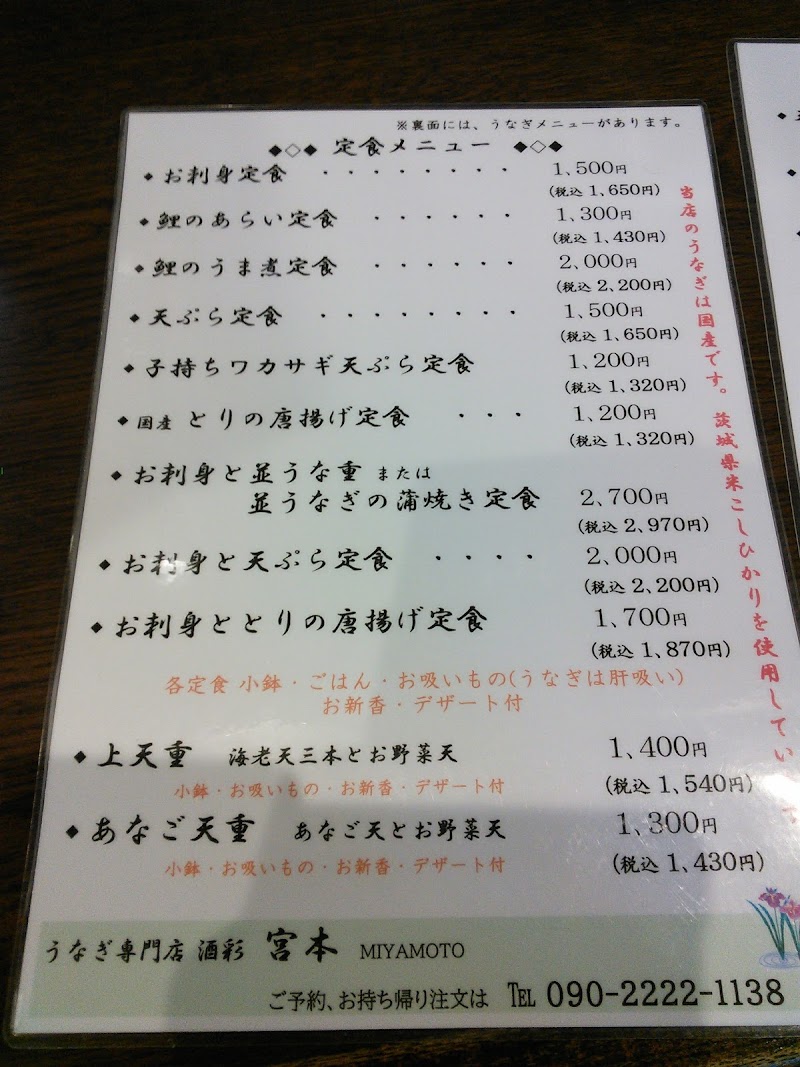 ※裏面には、うなぎメニューがあります。
◆◇◆ 定食メニュー ◆◇◆
◆お刺身定食 ・・・・・・・・ 1,500円
(税込 1,650円)
◆鯉のあらい定食 ・・・・・・ 1,300円
(税込 1,430円)
◆鯉のうま煮定食 ・・・・・・ 2,000円
(税込 2,200円)
◆天ぷら定食 ・・・・・・・・ 1,500円
(税込 1,650円)
◆子持ちワカサギ天ぷら定食 1,200円
(税込 1,320円)
◆国産 とりの唐揚げ定食 ・・・ 1,200円
(税込 1,320円)
◆お刺身と並うな重 または
並うなぎの蒲焼き定食 2,700円
(税込 2,970円)
◆お刺身と天ぷら定食 ・・・・ 2,000円
(税込 2,200円)
◆お刺身ととりの唐揚げ定食 1,700円
(税込 1,870円)
各定食 小鉢・ごはん・お吸いもの(うなぎは肝吸い)
お新香・デザート付
◆上天重 海老天三本とお野菜天 1,400円
小鉢・お吸いもの・お新香・デザート付 (税込 1,540円)
◆あなご天重 あなご天とお野菜天 1,300円
小鉢・お吸いもの・お新香・デザート付 (税込 1,430円)
当店のうなぎは国産です。茨城県米こしひかりを使用してい
うなぎ専門店 酒彩 宮本 MIYAMOTO
ご予約、お持ち帰り注文は ℡ 090-2222-1138